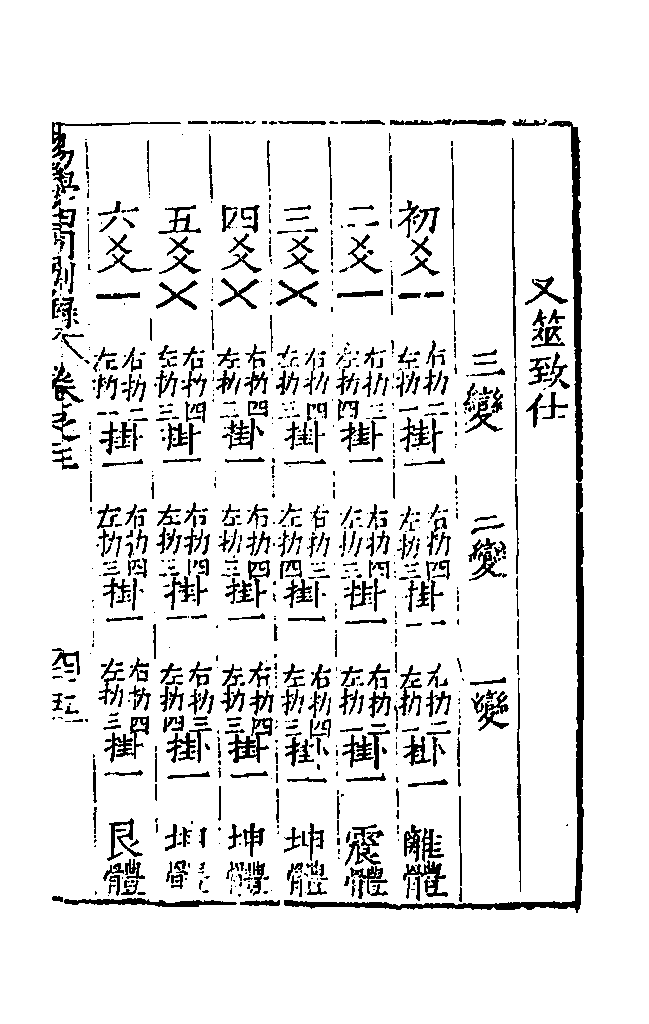 又筮致仕
三變 二變 一變
初爻一 右扐二左扐一掛一 右扐四左扐三掛一 右扐二左扐一掛一 離體
二爻一 右扐三左扐四掛一 右扐四左扐三掛一 右扐二左扐一掛一 震體
三爻㐅 右扐四左扐三掛一 右扐三左扐四掛一 右扐四左扐三掛一 坤體
四爻㐅 右扐四左扐三掛一 右扐四左扐三掛一 右扐四左扐三掛一 坤體
五爻㐅 右扐四左扐三掛一 右扐四左扐三掛一 右扐三左扐四掛一 坤體
六爻一 右扐二左扐一掛一 右扐四左扐三掛一 右扐四左扐三掛一 艮體
易學 錄 卷之 四五